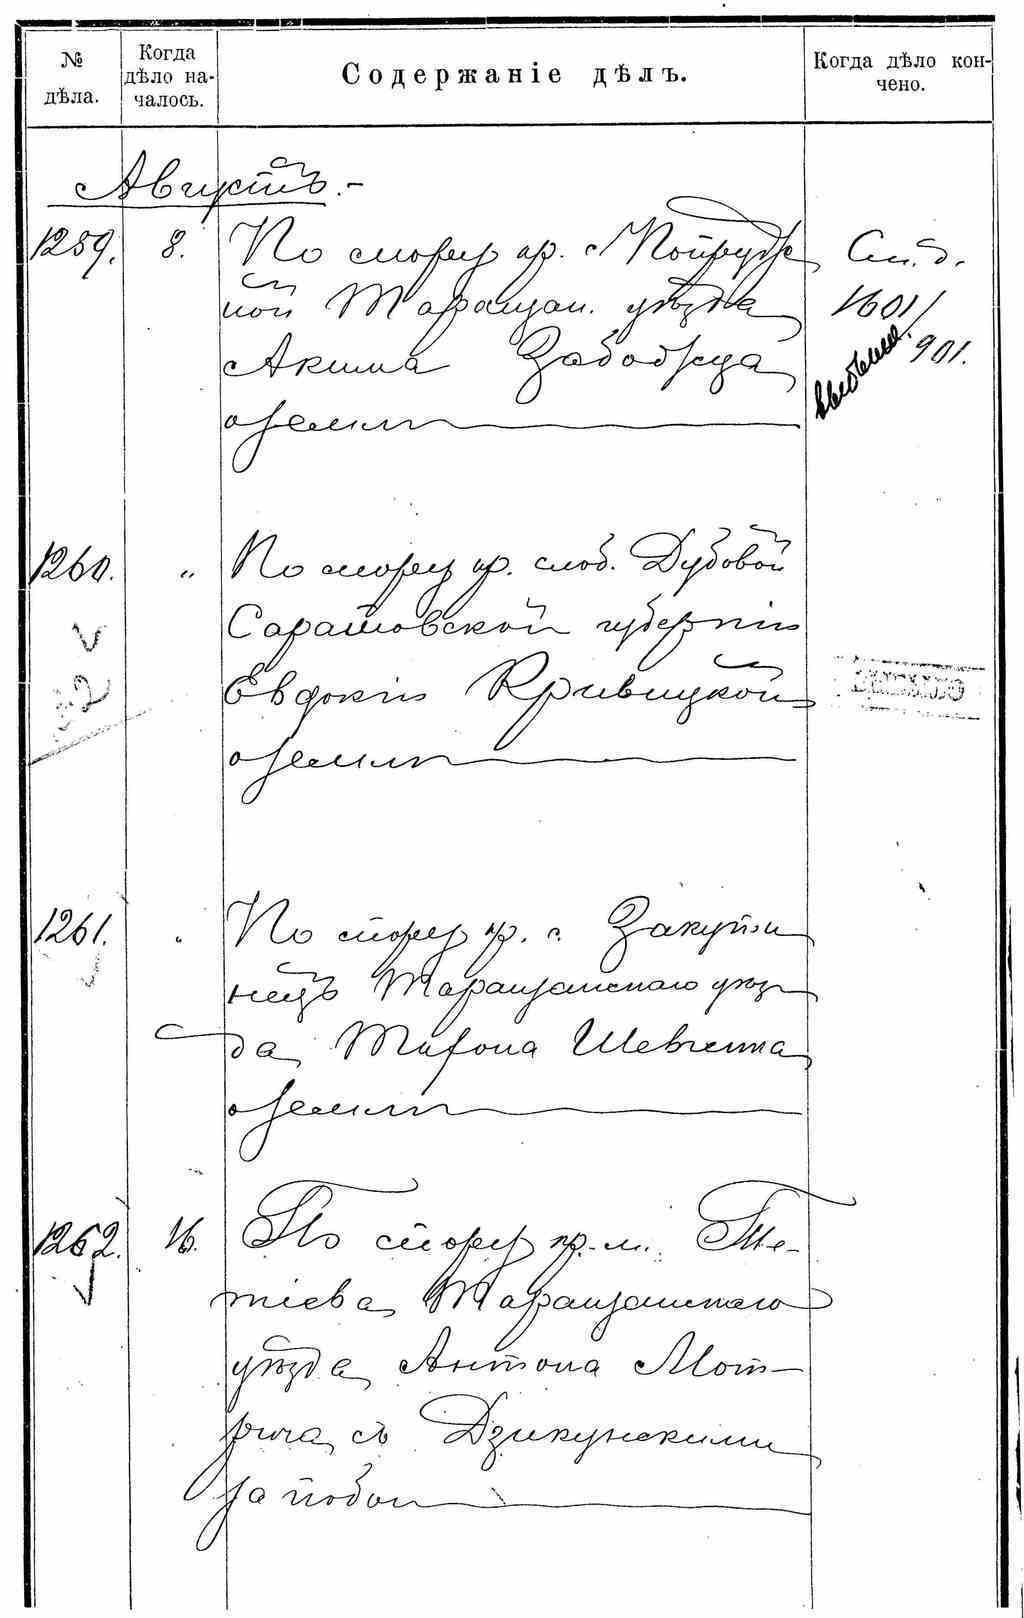 № дѣла.
Когда дѣло на-
чалось.
Содержаніе дѣлъ.
Когда дѣло кон-
чено.
Августъ.-
1259. 8. По спору кр. с. Погребс См. д.
ной Таращан. уѣзда 1601/
Акима Забодрца 901.
о земли
1260. " По спору кр. слоб. Дубовой
Саратовской губерніи
Евдокіи Кривицкой
о земли
1261. " По спору кр. с. Закути
нецъ Таращанскаго уѣз
да, Тифона Шевченка
о земли
1262. 16. По спору кр. м. Те-
тіева, Таращанскаго
уѣзда, Антона Мот-
рича, съ Дзикунскими
за побои